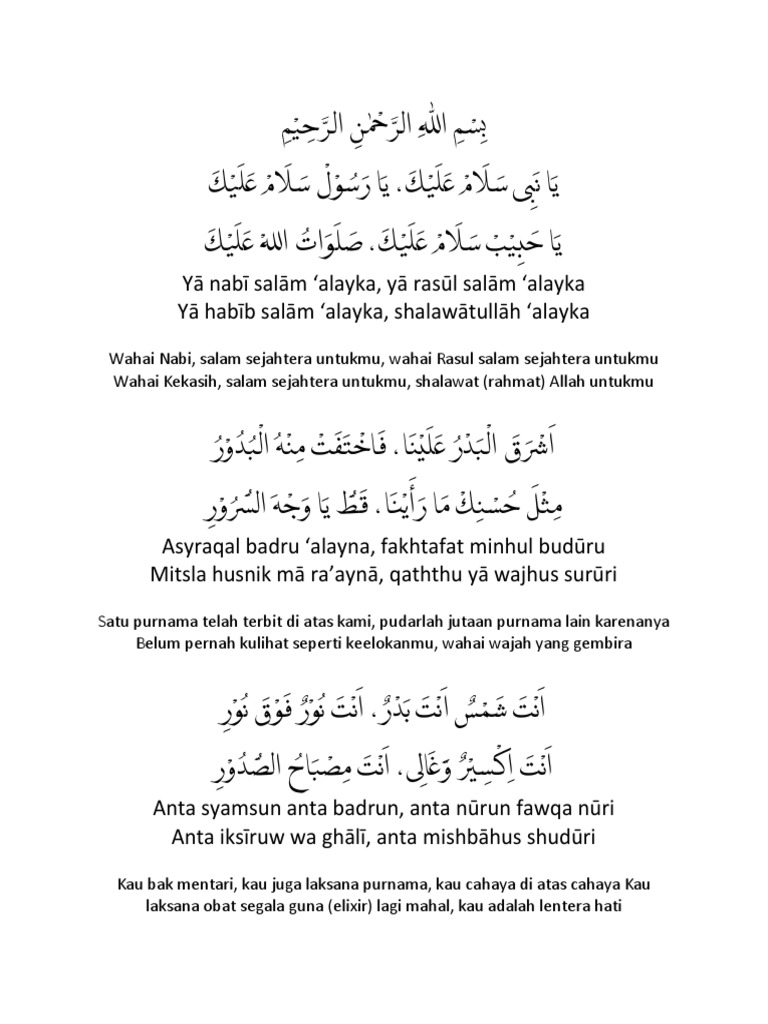 بِسْمِ اللهِ الرَّحْمٰنِ الرَّحِيْمِ
يَا نَبِى سَلَامْ عَلَيْكَ، يَا رَسُوْلْ سَلَامْ عَلَيْكَ
يَا حَبِيْبْ سَلَامْ عَلَيْكَ، صَلَوَاتُ اللهْ عَلَيْكَ
Yā nabī salām ‘alayka, yā rasūl salām ‘alayka
Yā habīb salām ‘alayka, shalawātullāh ‘alayka
Wahai Nabi, salam sejahtera untukmu, wahai Rasul salam sejahtera untukmu
Wahai Kekasih, salam sejahtera untukmu, shalawat (rahmat) Allah untukmu
اَشْرَقَ الْبَدْرُ عَلَيْنَا، فَاخْتَفَتْ مِنْهُ الْبُدُوْرُ
مِثْلَ حُسْنِكْ مَا رَأَيْنَا، قَطُّ يَا وَجْهَ السُّرُوْرِ
Asyraqal badru ‘alayna, fakhtafat minhul budūru
Mitsla husnik mā ra’aynā, qaththu yā wajhus surūri
Satu purnama telah terbit di atas kami, pudarlah jutaan purnama lain karenanya
Belum pernah kulihat seperti keelokanmu, wahai wajah yang gembira
اَنْتَ شَمْسٌ اَنْتَ بَدْرٌ، اَنْتَ نُوْرٌ فَوْقَ نُوْرِ
اَنْتَ اِكْسِيْرٌ وَّغَالِى، اَنْتَ مِصْبَاحُ الصُّدُوْرِ
Anta syamsun anta badrun, anta nūrun fawqa nūri
Anta iksīruw wa ghālī, anta mishbāhus shudūri
Kau bak mentari, kau juga laksana purnama, kau cahaya di atas cahaya Kau
laksana obat segala guna (elixir) lagi mahal, kau adalah lentera hati